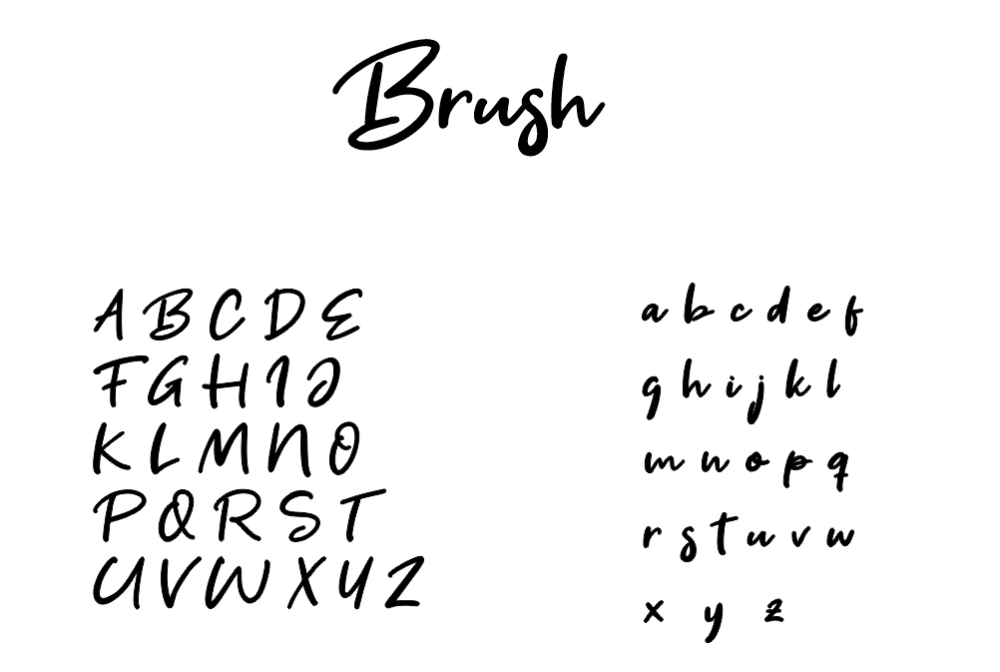 Brush
A B C D E
F G H I J
K L M N O
P Q R S T
U V W X Y Z
a b c d e f
g h i j k l
m n o p q
r s t u v w
x y z